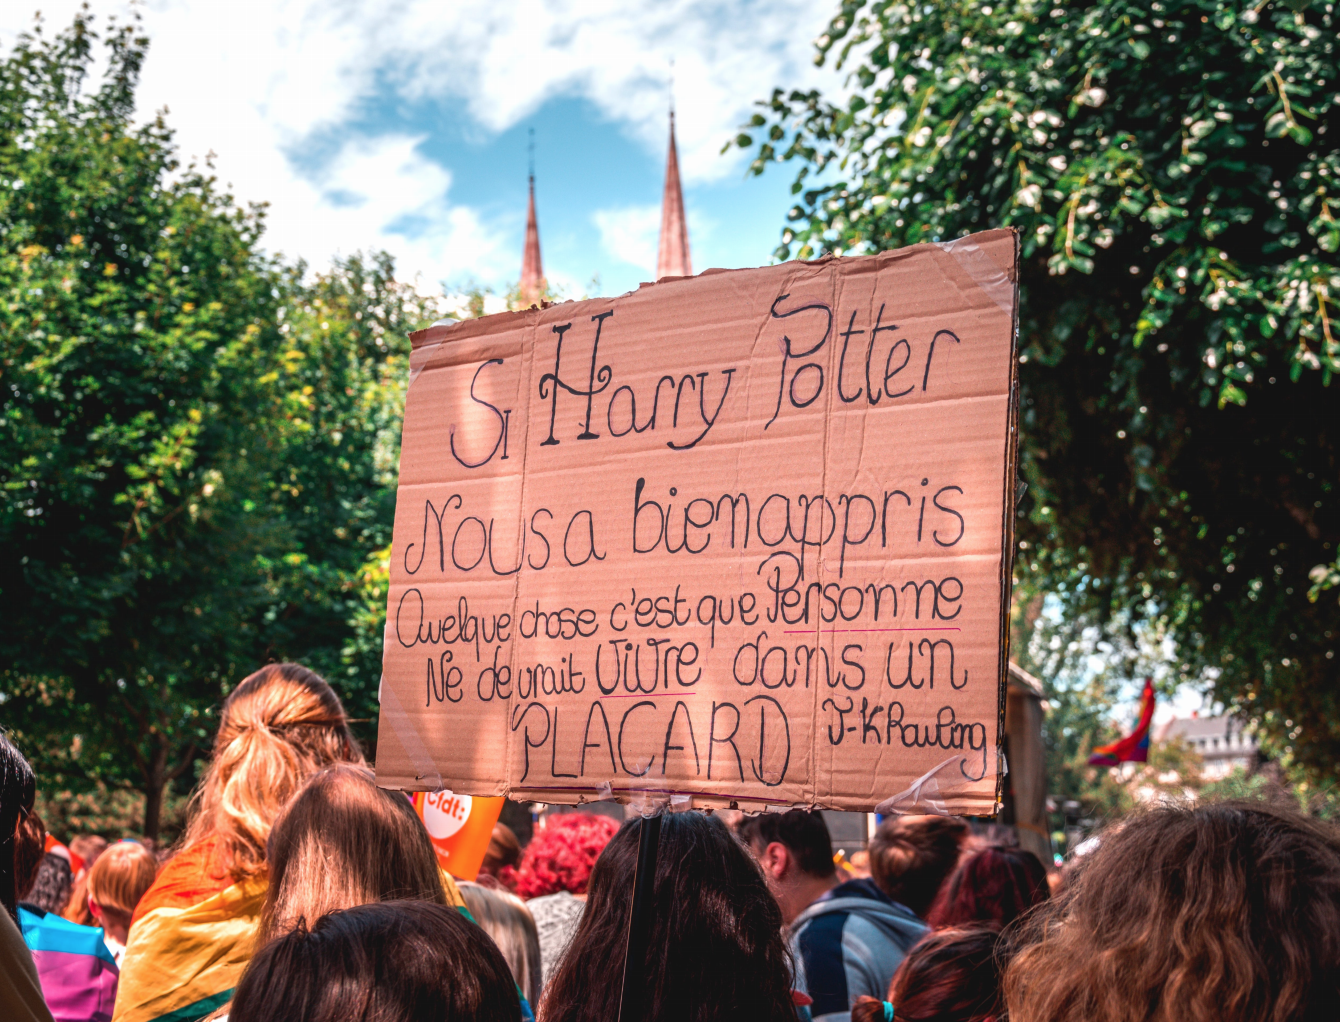 Si Harry Potter
Nous a bien appris
Quelque chose c'est que Personne
Ne devrait Vivre dans un
PLACARD J-K Rowling
cfdt: